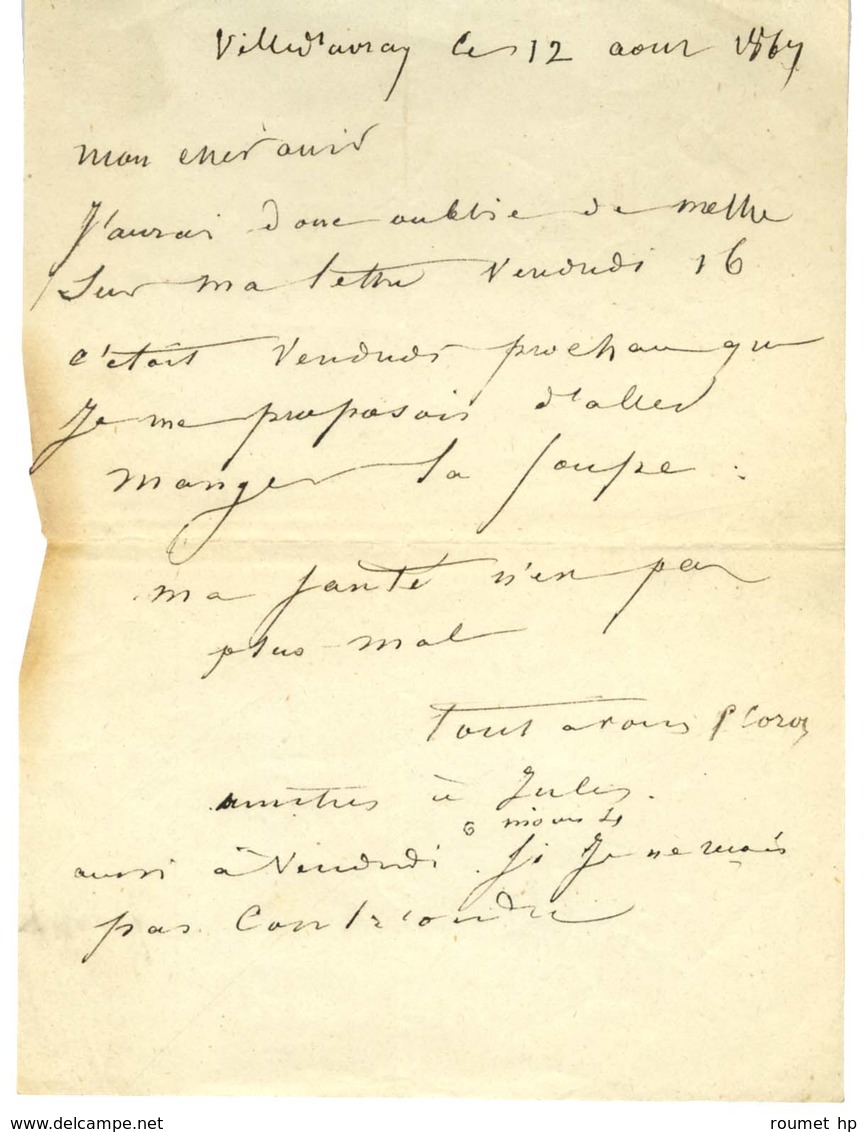 Villed'avray le 12 aout 1867
mon cher ami
J'aurai donc oublié de mettre
sur ma lettre Vendredi 16
c'était Vendredi prochain que
Je me proposais d'aller
manger la soupe.
ma santé n'en pas
plus mal
tout a vous C Corot
amitiés à Jules.
6 moins 1/4
aussi à Vendredi. Si Je ne reçois
pas Contr'ordre
roumet hp